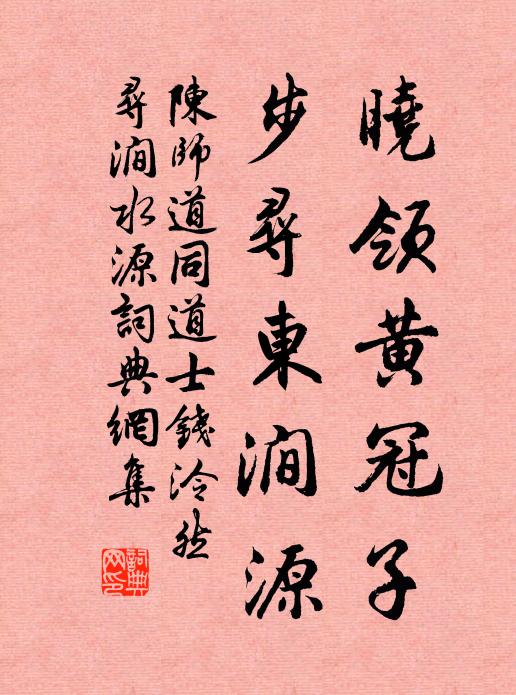 曉領黃冠子
步尋東澗源
陳師道同道士錢泠然
尋澗水源詞典網集
詞典
网印